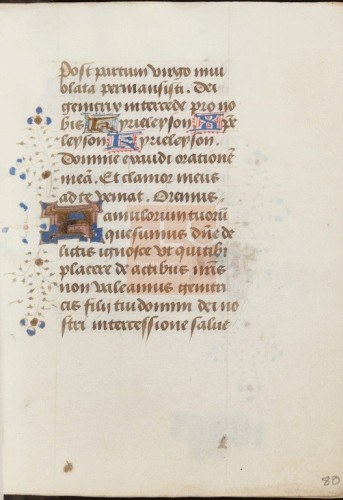 Post partum virgo invi
olata permansisti. Dei
genitrix intercede pro no
bis Kyrieleyson Xp̄e
leyson Kyrieleyson.
Domine exaudi orationē
meā. Et clamor meus
ad te veniat. Oremus.
Famulorum tuorū
quesumus dn̄e de
lictis ignosce ut qui tibi
placere de actibus nr̄is
non valeamus genitri
cis filii tui domini dei no
stri intercessione salue
80